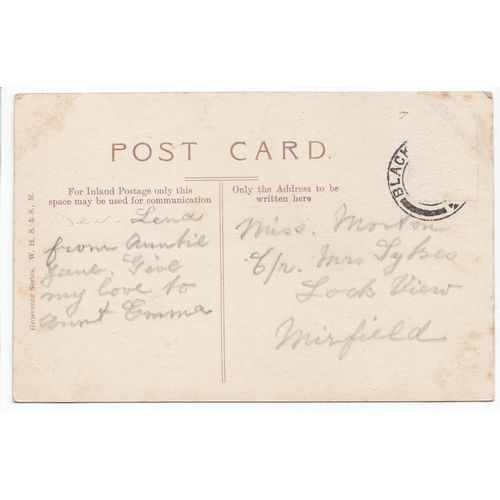 POST CARD.
For Inland Postage only this
space may be used for communication
Only the Address to be
written here
Grosvenor Series. W. H. S. & S., M.
BLACK
Dear Lena
from Auntie
Jane. Give
my love to
aunt Emma
Miss. Morton
C/r. Mrs Sykes
Lock View
Mirfield